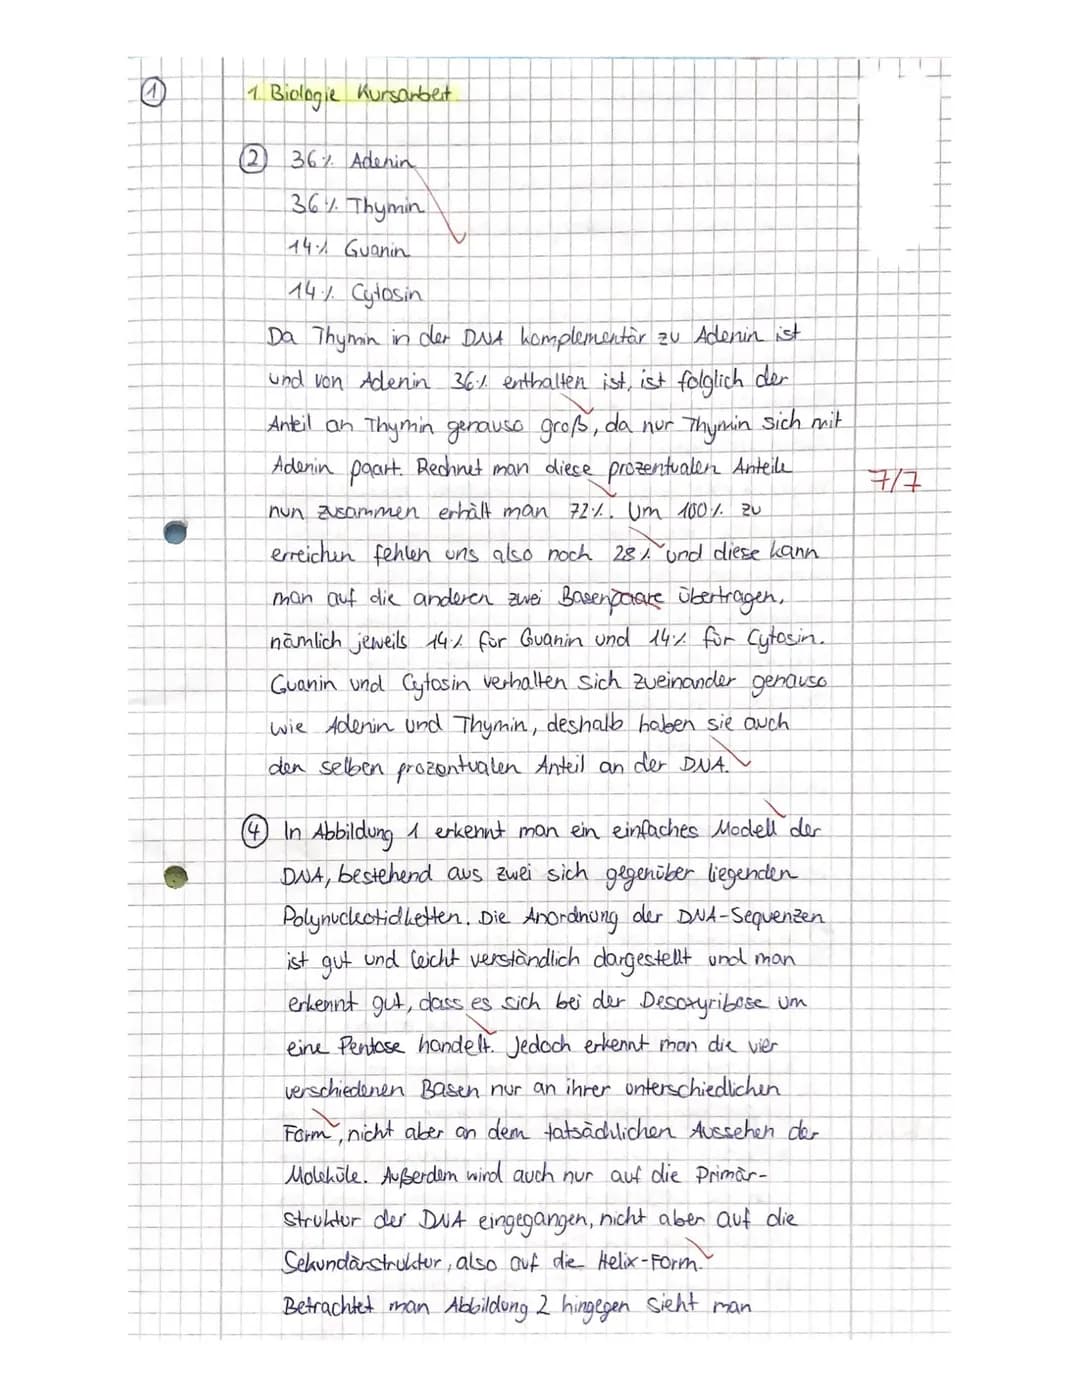 1
1. Biologie Kursarbeit
2 36% Adenin
36% Thymin
14% Guanin
14% Cytosin
Da Thymin in der DNA komplementär zu Adenin ist
und von Adenin 36% enthalten ist, ist folglich der
Anteil an Thymin genauso groß, da nur Thymin sich mit
Adenin paart. Rechnet man diese prozentualen Anteile
7/7
nun zusammen erhält man 72%. Um 100% zu
erreichen fehlen uns also noch 28% und diese kann
man auf die anderen zwei Basenpaare übertragen,
nämlich jeweils 14% für Guanin und 14% für Cytosin.
Guanin und Cytosin verhalten sich zueinander genauso
wie Adenin und Thymin, deshalb haben sie auch
den selben prozentualen Anteil an der DNA.
4 In Abbildung 1 erkennt man ein einfaches Modell der
DNA, bestehend aus zwei sich gegenüber liegenden
Polynucleotidketten. Die Anordnung der DNA-Sequenzen
ist gut und leicht verständlich dargestellt und man
erkennt gut, dass es sich bei der Desoxyribose um
eine Pentose handelt. Jedoch erkennt man die vier
verschiedenen Basen nur an ihrer unterschiedlichen
Form, nicht aber an dem tatsächlichen Aussehen der
Moleküle. Außerdem wird auch nur auf die Primär-
struktur der DNA eingegangen, nicht aber auf die
Sekundärstruktur, also auf die Helix-Form.
Betrachtet man Abbildung 2 hingegen sieht man